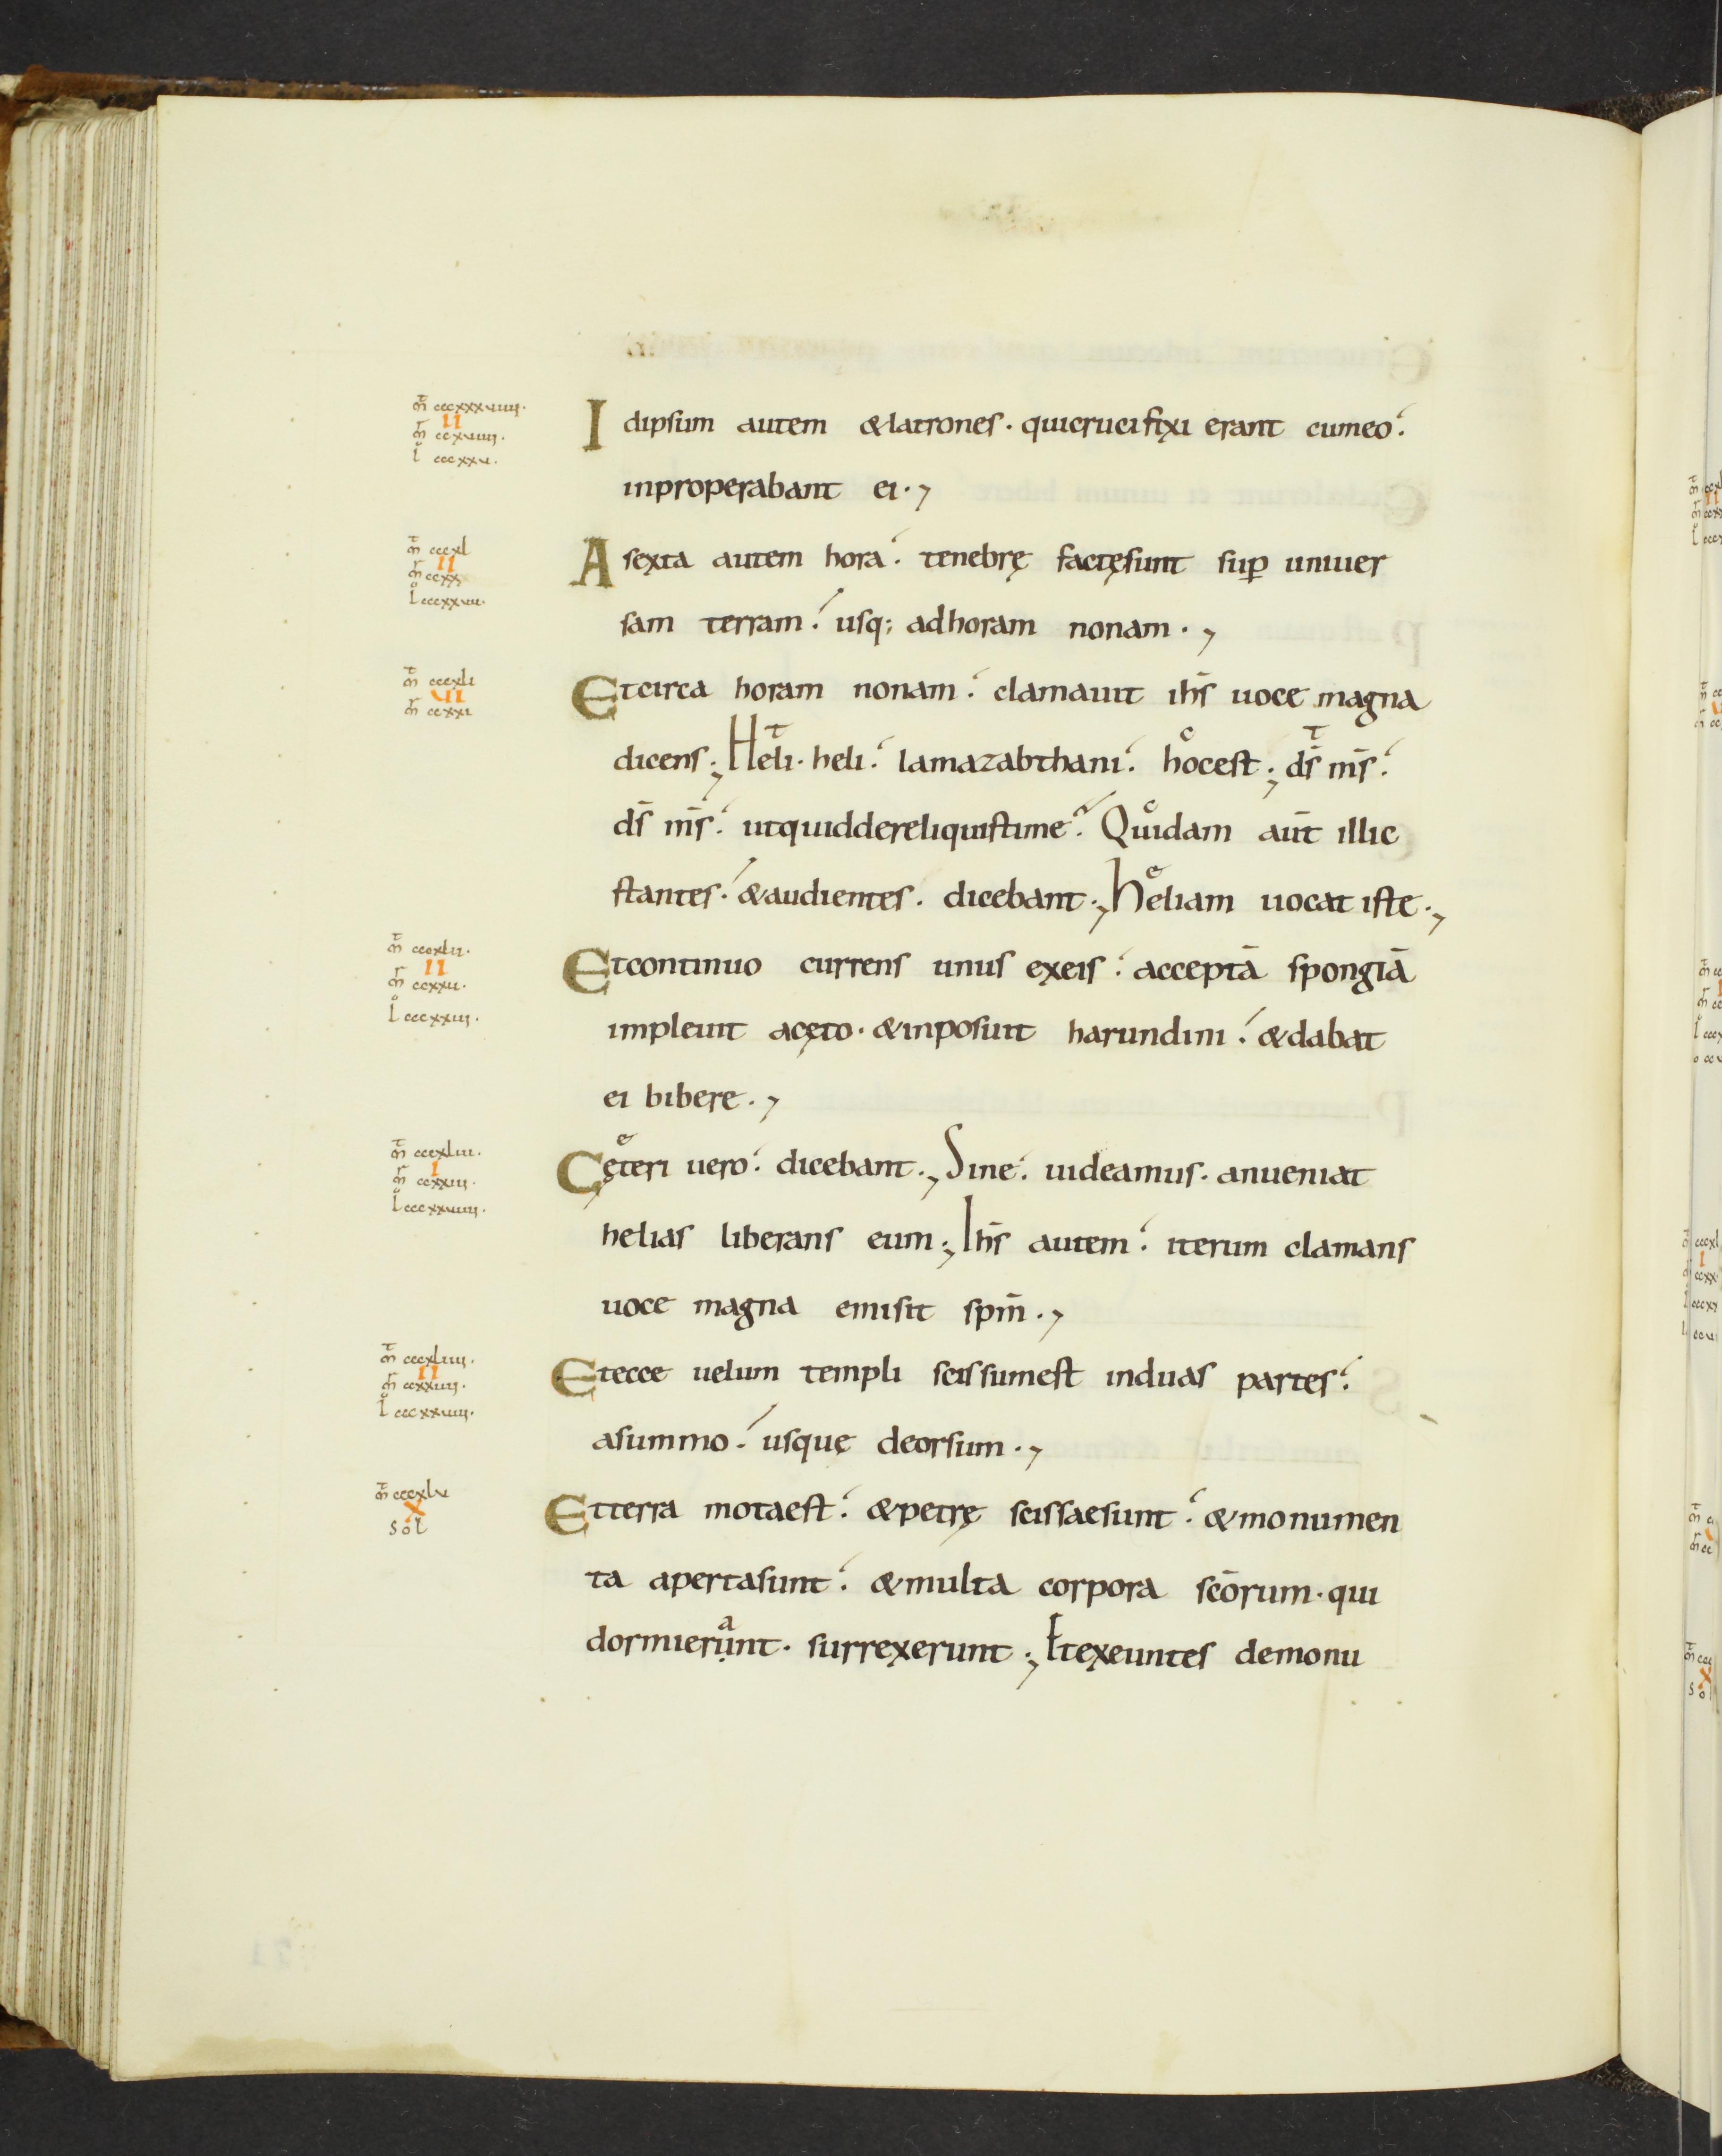 m̄ cccxxxviiii.
II
m̄ ccxviiii.
l cccxxv.
Idipsum autem &latrones. quicrucifixi erant cumeo.
inproperabant ei.,
m̄ cccxl
II
m̄ ccxx
l cccxxvii.
A sexta autem hora. tenebrę factęsunt sup̱ uniuer
sam terram. usq; adhoram nonam.,
m̄ cccxli
VI
m̄ ccxxi
Etcirca horam nonam. clamauit ih̄s uoce magna
dicens; Heli. heli. lamazabthani. hocest; d̄s m̄s.
d̄s m̄s. utquiddereliquistime? Quidam aūt illic
stantes. &audientes. dicebant; Heliam uocat iste.,
m̄ cccxlii.
II
m̄ ccxxii.
l cccxxiii.
Etcontinuo currens unus exeis. acceptā spongiā
impleuit acęto. &inposuit harundini. &dabat
ei bibere.,
m̄ cccxliii.
I
m̄ ccxxiii.
l cccxxviiii.
Cęteri uero. dicebant., Sine. uideamus. anueniat
helias liberans eum; Ih̄s autem. iterum clamans
uoce magna emisit sp̄m.,
m̄ cccxliiii.
II
m̄ ccxxiiii.
l cccxxviiii.
Etecce uelum templi scissumest induas partes.
asummo. usquę deorsum.,
m̄ cccxlv
X
sol
Etterra motaest. &petrę scissaesunt. &monumen
ta apertasunt. &multa corpora sc̄orum. qui
dormierụant. surrexerunt; Etexeuntes demonu